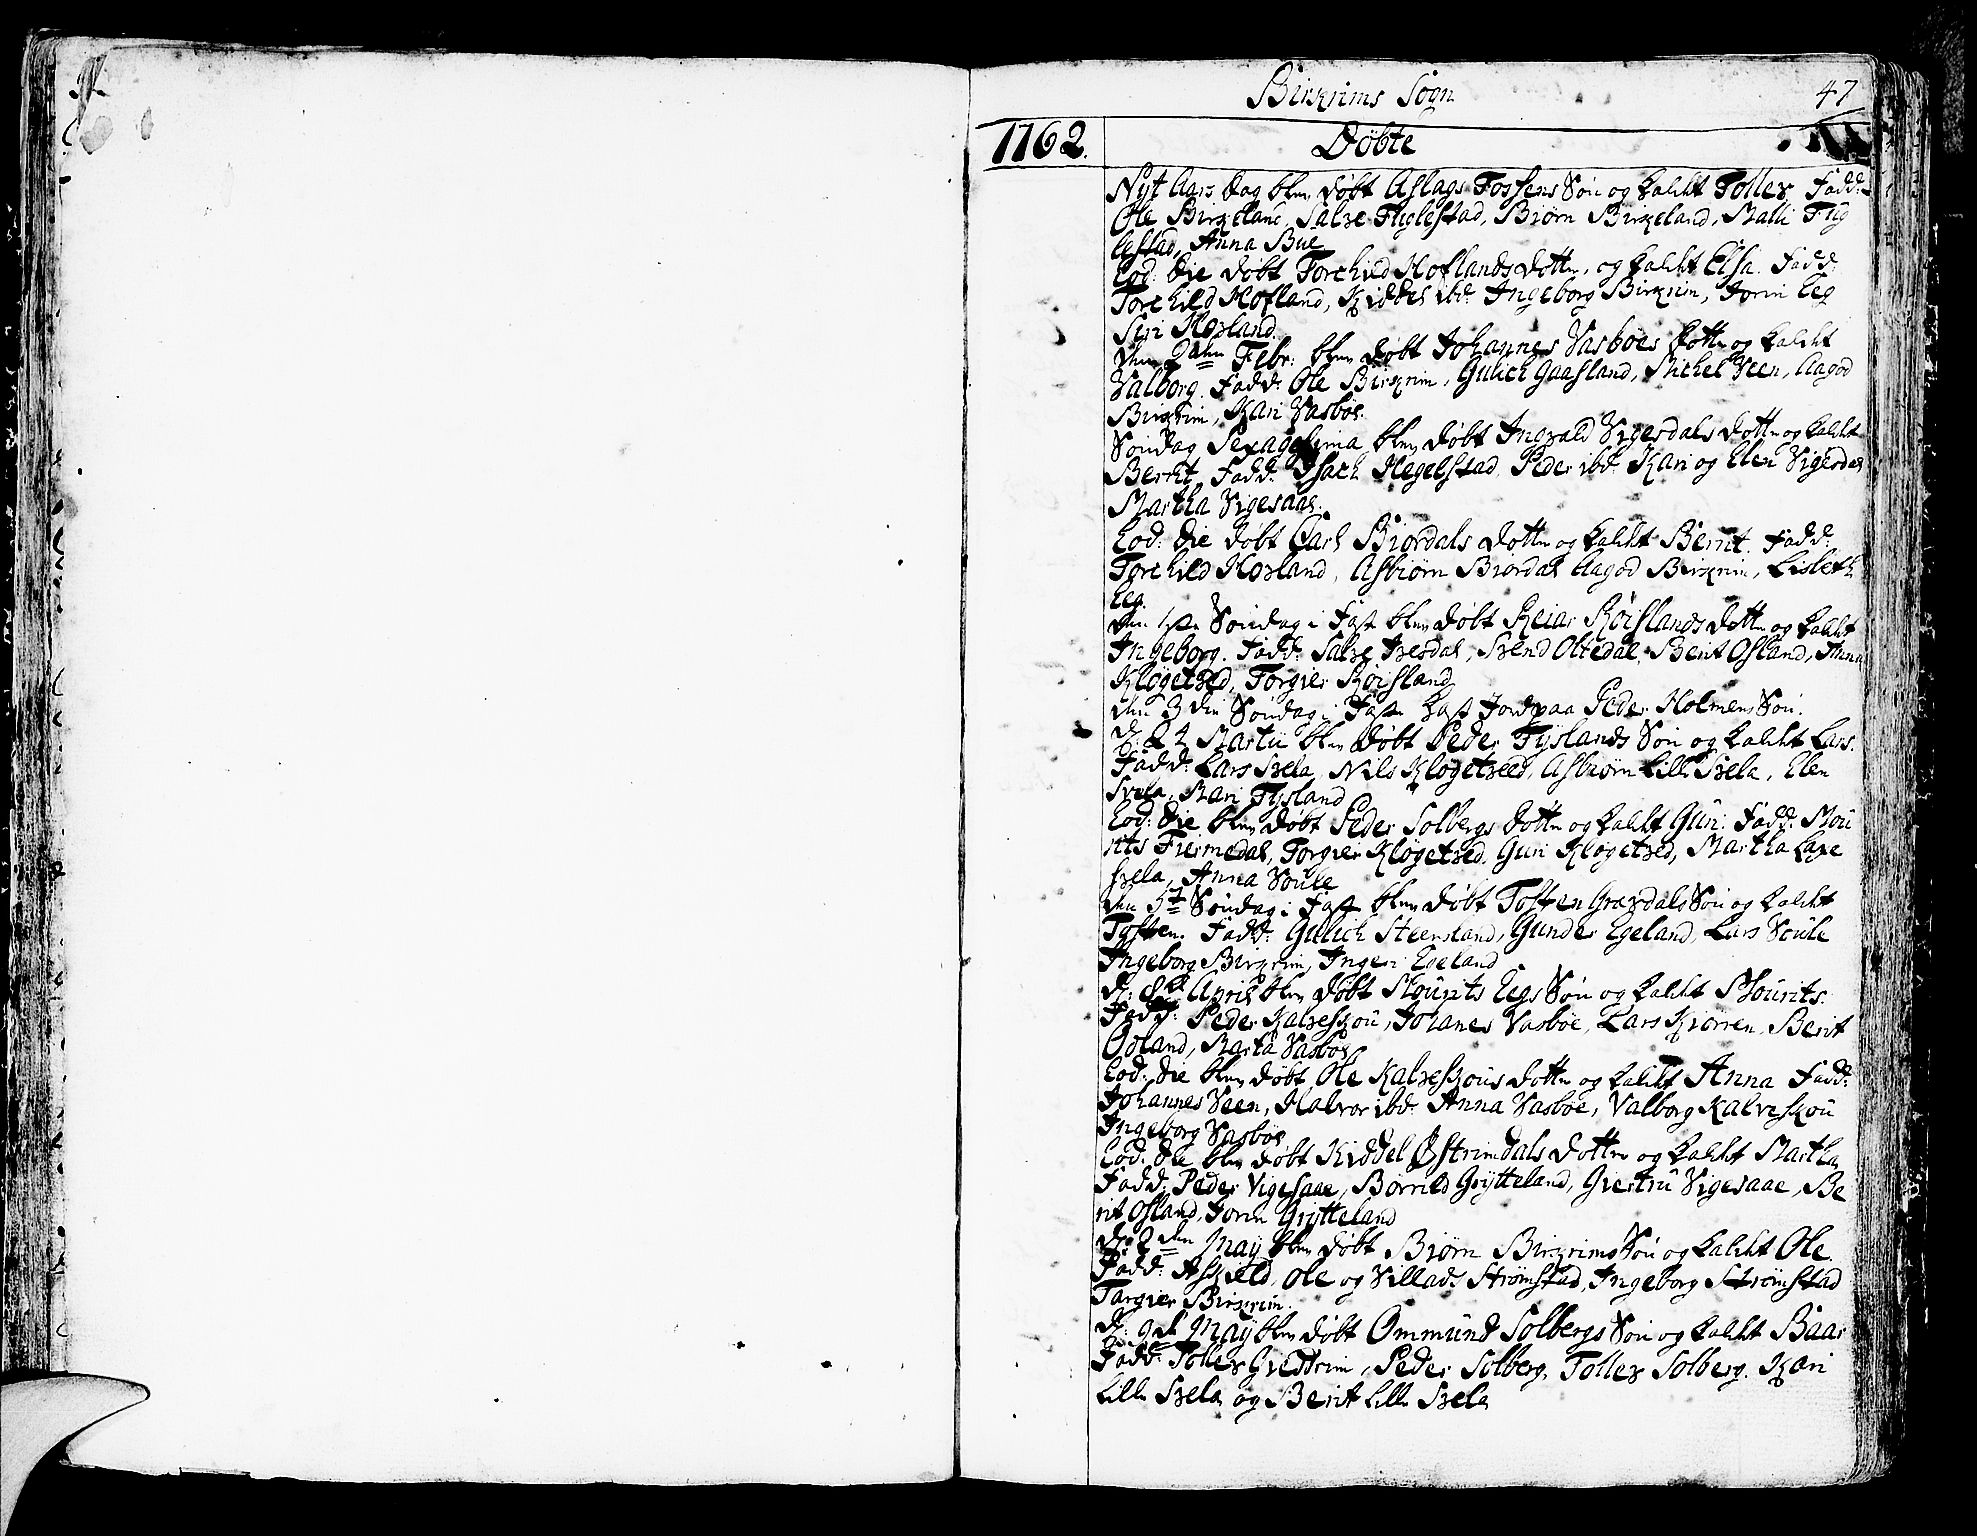 Birkrims Sogn
47
1762.
Døbte
Nyt Aars dag blev døbt Aslags Fossens Søn og kaldt Tollev Fadd:
Ole Birkeland, Salve Fuglestad, Biørn Birkeland, Malli Fug
lestad, Anna Bue
Eod: die døbt Torchild Hoflands dotter, og kaldt Elsa. Fadd:
Torchild Hofland, Kiddel ibd: Ingeborg Birkrim, Jorin Eeg
Siri Hovland.
den 2den Febr: blev døbt Johannes Vasboes dotter og kaldt
Valborg. Fadd: Ole Birkrim, Gulich Gaasland, Michel Veen, Aagod
Birkrim, Kari Vasboe.
Søndag Sexagesima blev døbt Ingvald Vigesdals dotter og kaldt
Berrit. Fadd: Isach Hegelstad, Peder ibd: Kari og Elen Vigesdal
Martha Vigesaae.
Eod: die døbt Carl Biordals dotter og kaldt Berrit. Fadd:
Torchild Hovland, Asbiørn Biordal Aagod Birkrim, Lisbeth
Eeg.
den 1ste Søndag i Fast blev døbt Reiar Røislands dotter og kaldt
Ingeborg. Fadd: Salve Ivesdal, Svend Oltedal, Berit Osland, Anna
Kløgetved, Torgier Røisland
den 3den Søndag i Fasten kast Jord paa Peder Holmens Søn.
d: 24 Martii blev døbt Peder Tyslands Søn og kaldt Lars.
Fadd: Lars Svela, Nils Kløgetveed, Asbiørn Lille Svela, Elen
Svela, Mari Tysland
Eod: die blev døbt Peder Solbergs dotter og kaldt Guri. Fadd: Mou
rits Fiermedal, Torgier Kløgetved, Guri Kløgetved, Martha Lave
Svela, Anna Soule
den 5te Søndag i Fast blev døbt Tosten Gravdals Søn og kaldt
Tosten. Fadd: Gulich Steensland, Gunder Egeland, Lars Soule
Ingeborg Birkrim, Inger Egeland
d: 8de April blev døbt Mourits Eegs Søn og kaldt Mourits.
Fadd: Peder Kalveskou, Johanes Vasboe, Lars Kiørren, Berit
Odland, Marta Vasboe
Eod: die blev døbt Ole Kalveskous dotter og kaldt Anna Fadd:
Johannes Veen, Halvor ibd: Anna Vasboe, Valborg Kalveskou
Ingeborg Vasboe
Eod: die blev døbt Kiddel Østrimdals dotter og kaldt Martha
Fadd: Peder Vigesaae, Børrild Grytteland, Giertru Vigesaae, Be
rit Osland, Jorin Grytteland
d: 2den May blev døbt Biørn Birkrims Søn og kaldt Ole
Fadd: Askield, Ole og Villads Strømstad, Ingeborg Strømstad
Targier Birkrim.
d: 9de May blev døbt Ommund Solbergs Søn og kaldt Baar
Fadd: Tollev Giedtrim, Peder Solberg, Tollev Solberg. Kari
Lille Svela og Berit Lille Svela